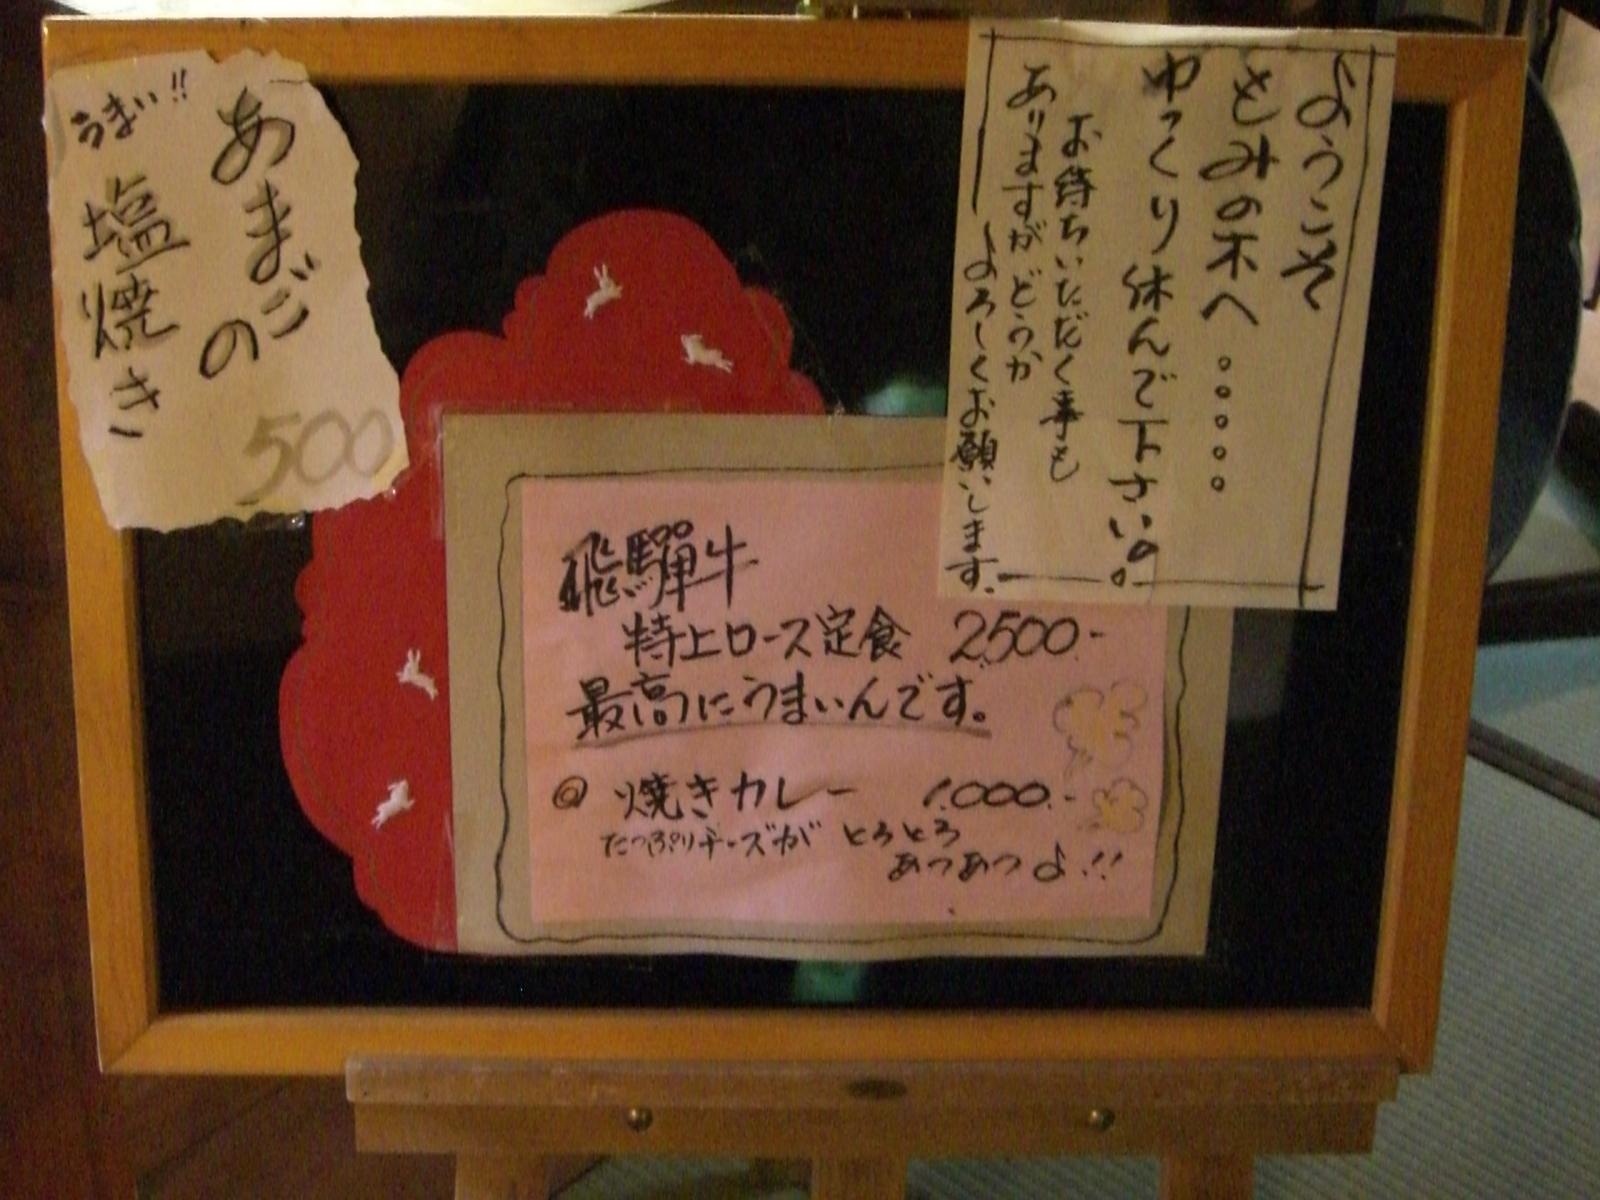 うまい!!
あまごの
塩焼き
500
ようこそ
とみの木へ。。。。。
ゆっくり休んで下さいの。
お待ちいただく事も
ありますがどうか
よろしくお願いします。
飛騨牛
特上ロース定食 2500.-
最高にうまいんです。
◎ 焼きカレー 1.000.-
たっぷりチーズが とろとろ
あつあつよ!!